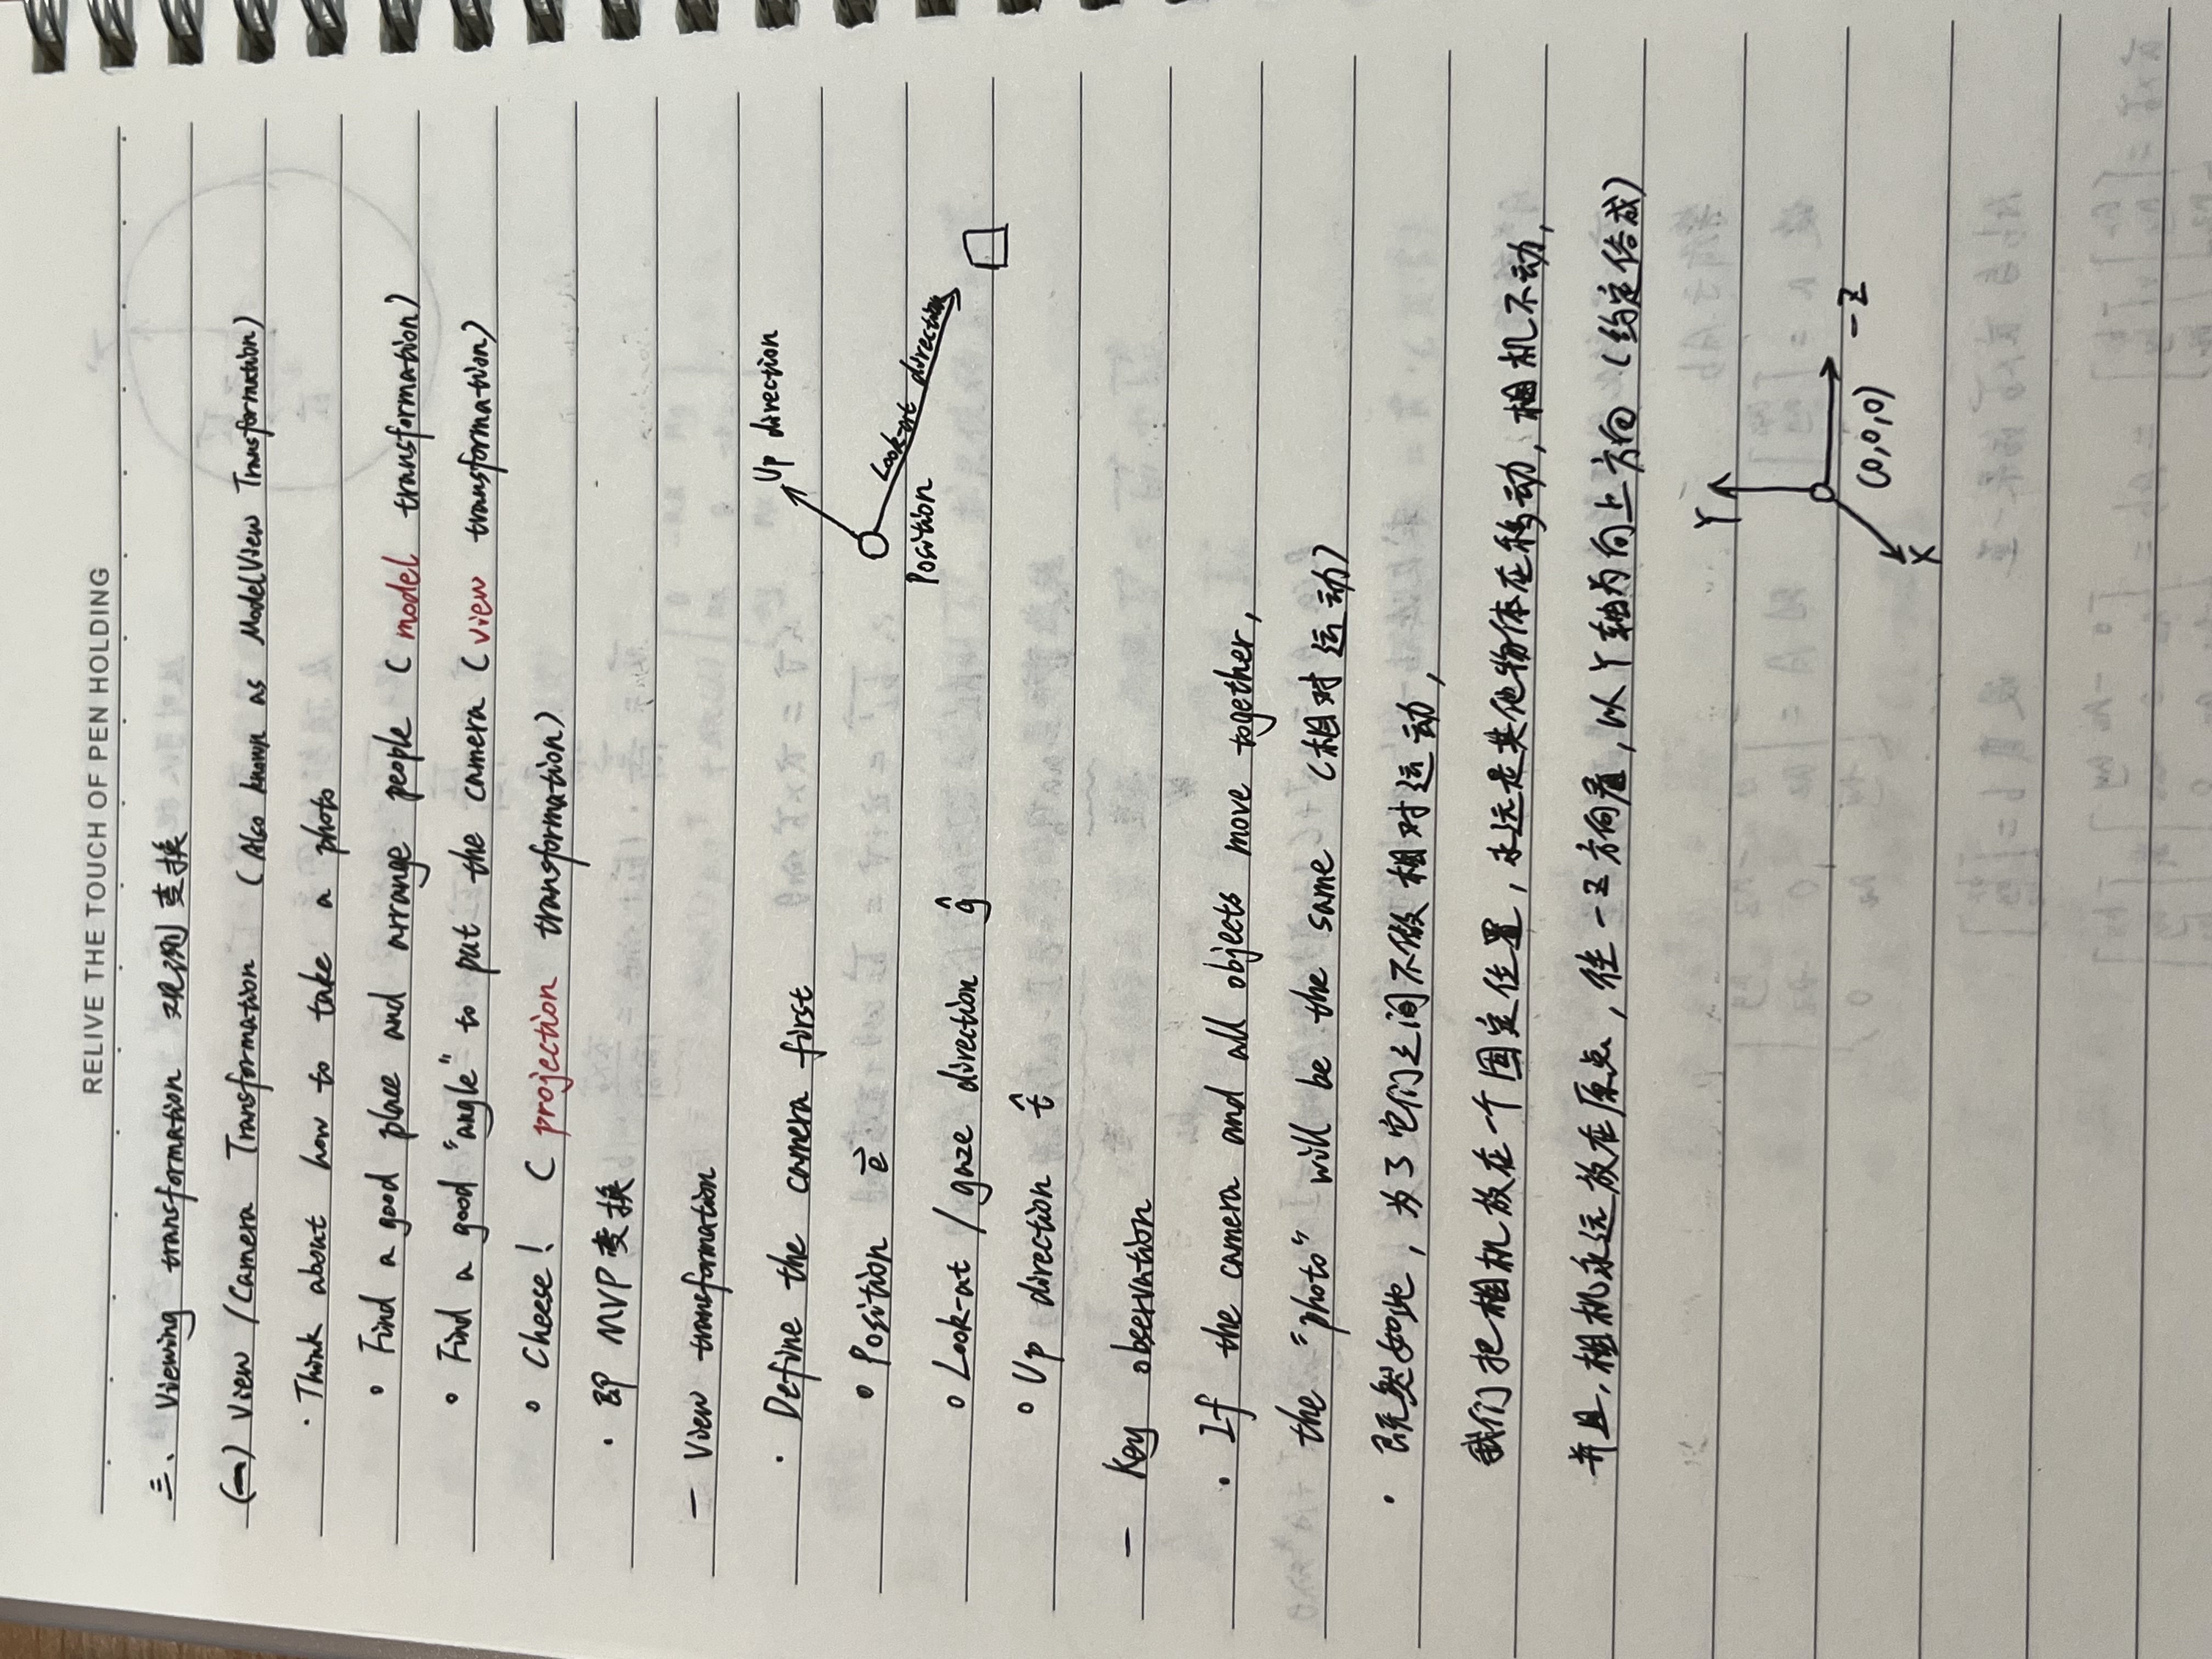 RELIVE THE TOUCH OF PEN HOLDING
三、Viewing transformation 观测变换
(一) View / Camera Transformation (Also known as ModelView Transformation)
· Think about how to take a photo
∘ Find a good place and arrange people (model transformation)
∘ Find a good "angle" to put the camera (view transformation)
∘ Cheese! (projection transformation)
· 即 MVP 变换
— View transformation
· Define the camera first
Up direction
∘ Position e⃗
Look-at direction
Position
∘ Look-at / gaze direction ĝ
∘ Up direction t̂
— Key observation
· If the camera and all objects move together,
the "photo" will be the same (相对运动)
· 既然如此，为了它们之间不做相对运动，
我们把相机放在一个固定位置，永远是其他物体在移动，相机不动，
并且，相机永远放在原点，往 -Z 方向看，以 Y 轴为向上方向（约定俗成）
Y
-Z
(0,0,0)
X